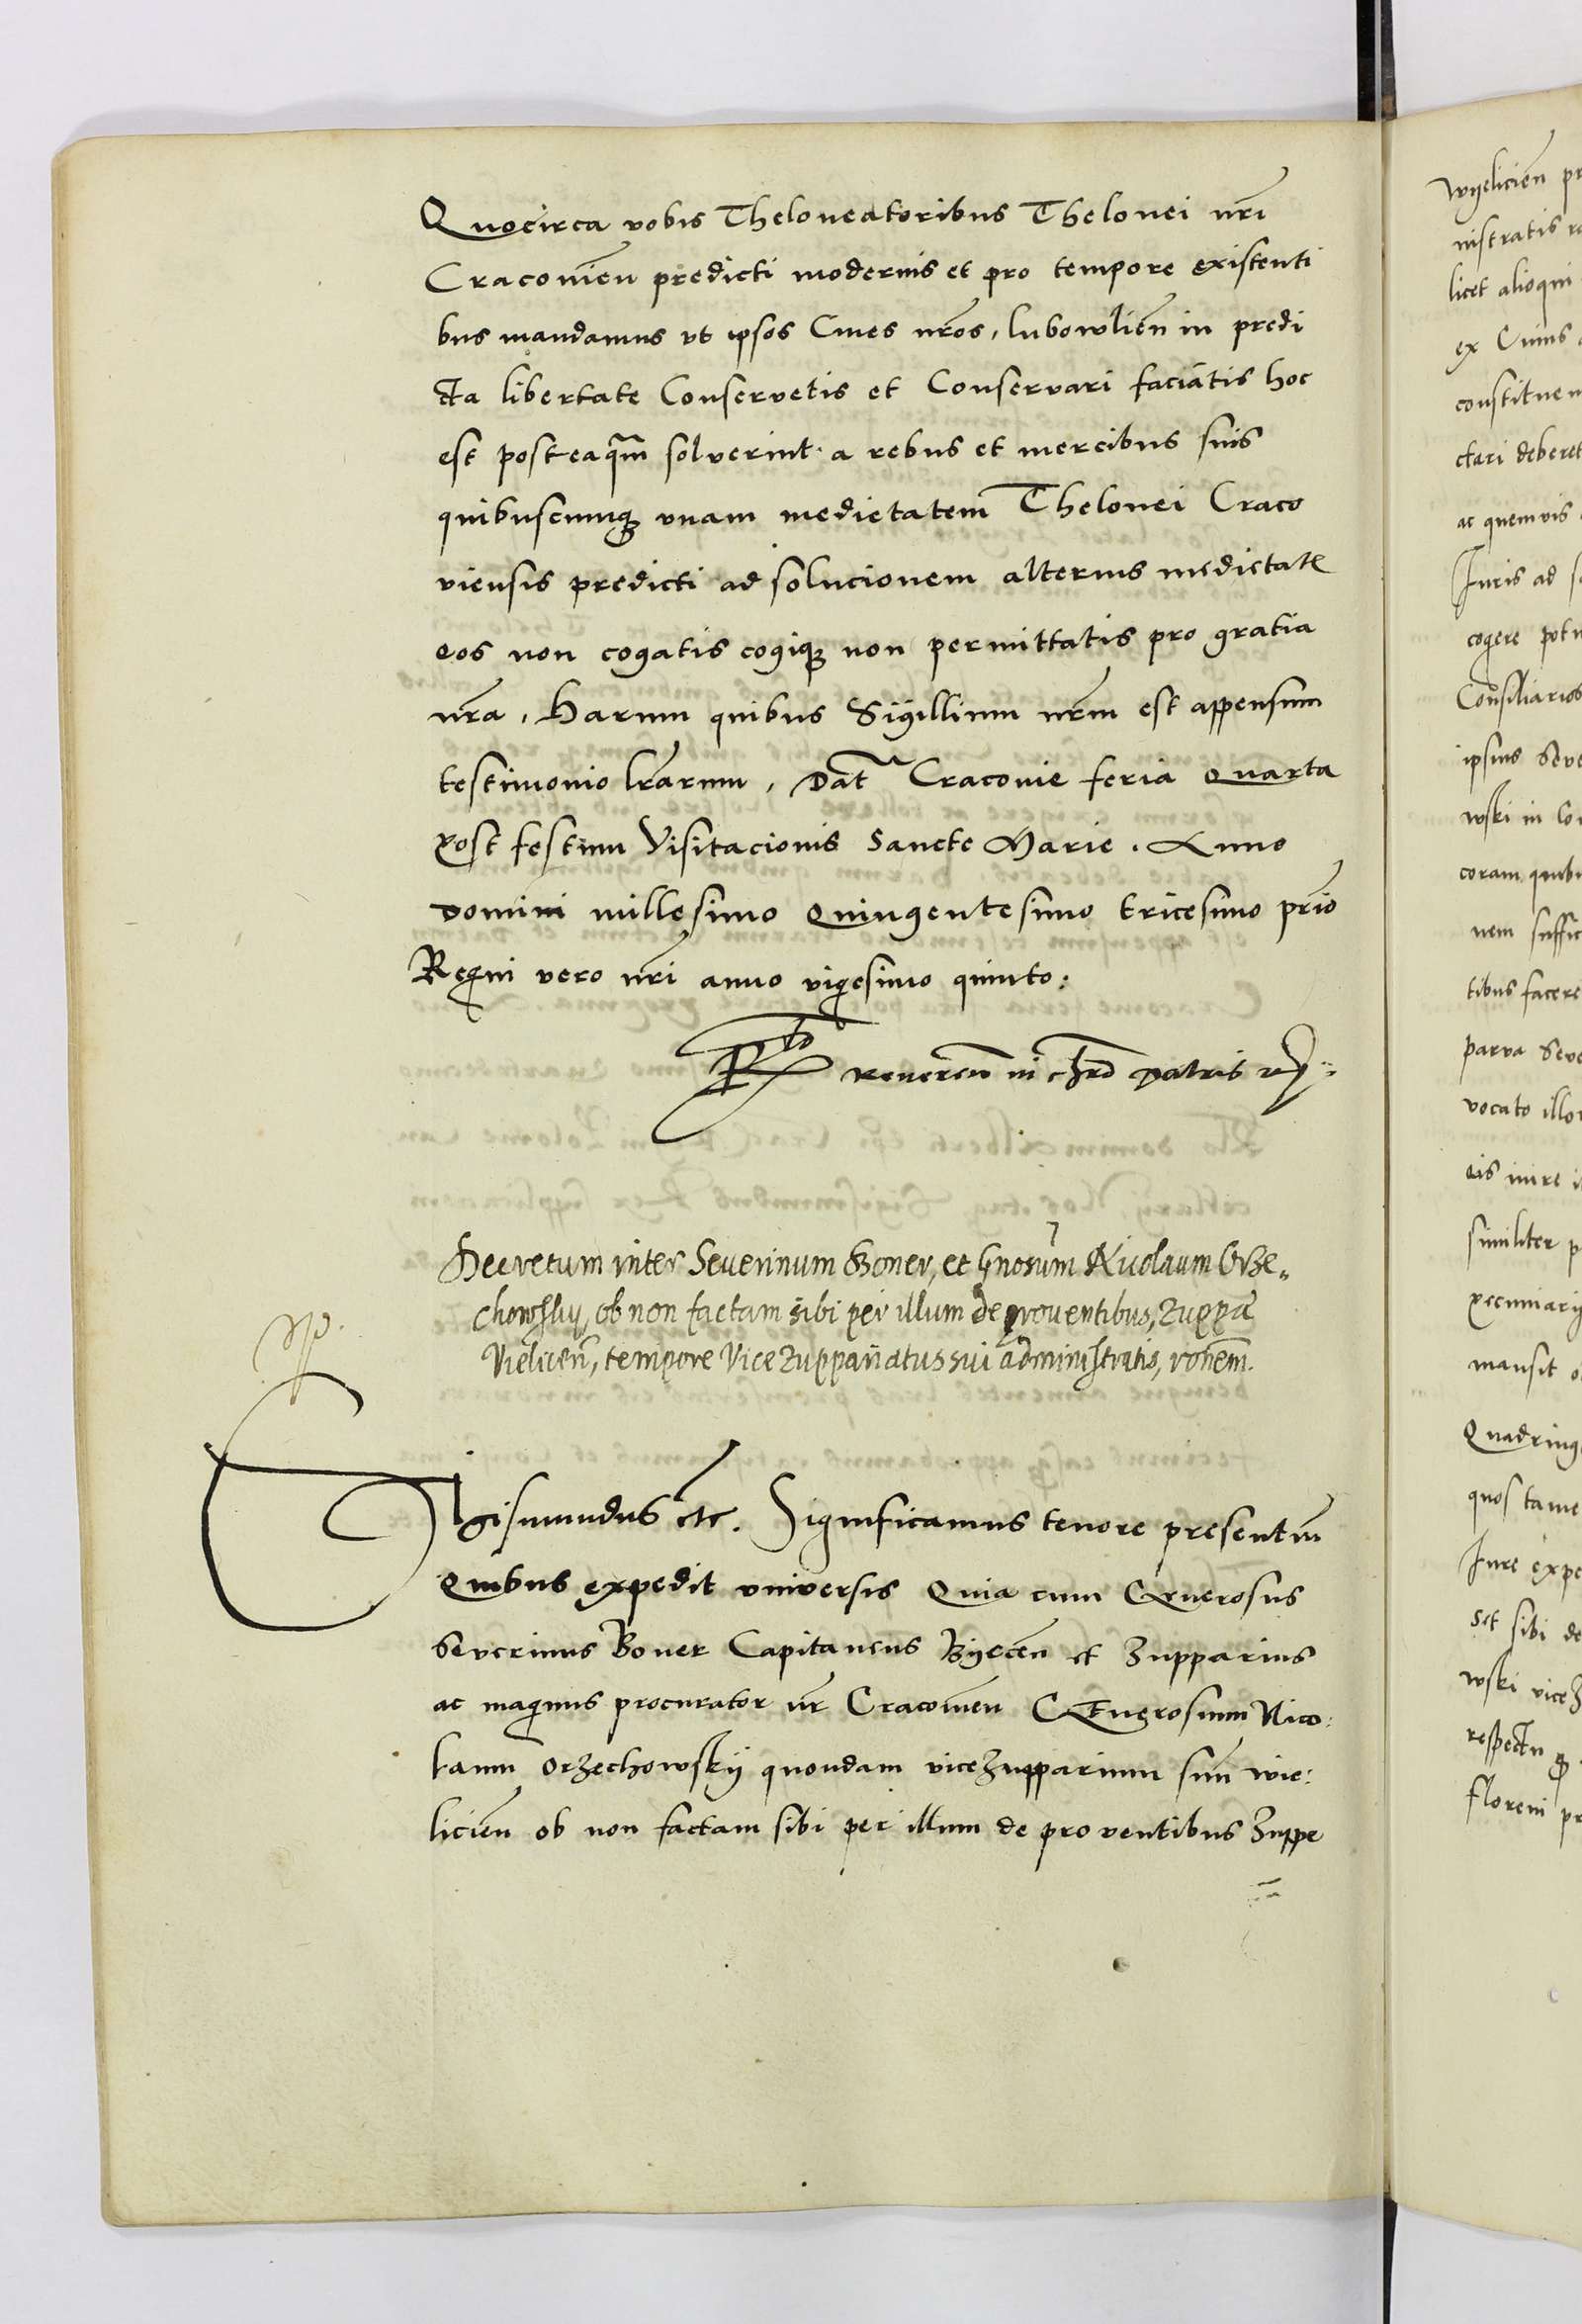 Quocirca vobis Theloneatoribus Thelonei nri
Cracovien predicti modernis et pro tempore existenti
bus mandamus vt ipsos Cives nros, lubowlien in predi
cta libertate Conservetis et Conservari faciatis hoc
est posteaqm solverint a rebus et mercibus suis
quibuscunq unam medietatem Thelonei Craco
viensis predicti ad solucionem alterius medietatis
eos non cogatis cogiq non permittatis pro gratia
nra, Harum quibus Sigillum nrm est appensum
testimonio lrarum, Dat Cracovie feria quarta
post festum Visitacionis Sancte Marie. Anno
domini millesimo quingentesimo tricesimo prio
Regni vero nri anno vigesimo quinto:
Rto Reveren in chro patris
Decretum inter Severinum Boner, et Gnosum Nicolaum Orze,
chowskij, ob non factam sibi per illum de proventibus, zuppae
Vielicien, tempore Vicezuppariatus sui administratis, ronem.
Sigismundus etc. Significamus tenore presentium
Quibus expedit universis Quia cum Generosus
Severinus Boner Capitaneus Byecen et Zupparius
ac magnus procurator nr Cracovien Generosum Nico:
laum Orzechowskij quondam vicezupparium suum wie:
licien ob non factam sibi per illum de proventibus Zuppe
wyelicien
nistratis
licet alioqui
ex Cuius
constituen
ctari deberet
ac quemvis
Juris ad
cogere
Consiliarios
ipsius
wski in
coram quibu
nem
tibus facere
parva
vocato
eis
similiter
pecuniarij
mansit
Quadring
quos tame
Jure
set sibi de
wski
respectu
floreni